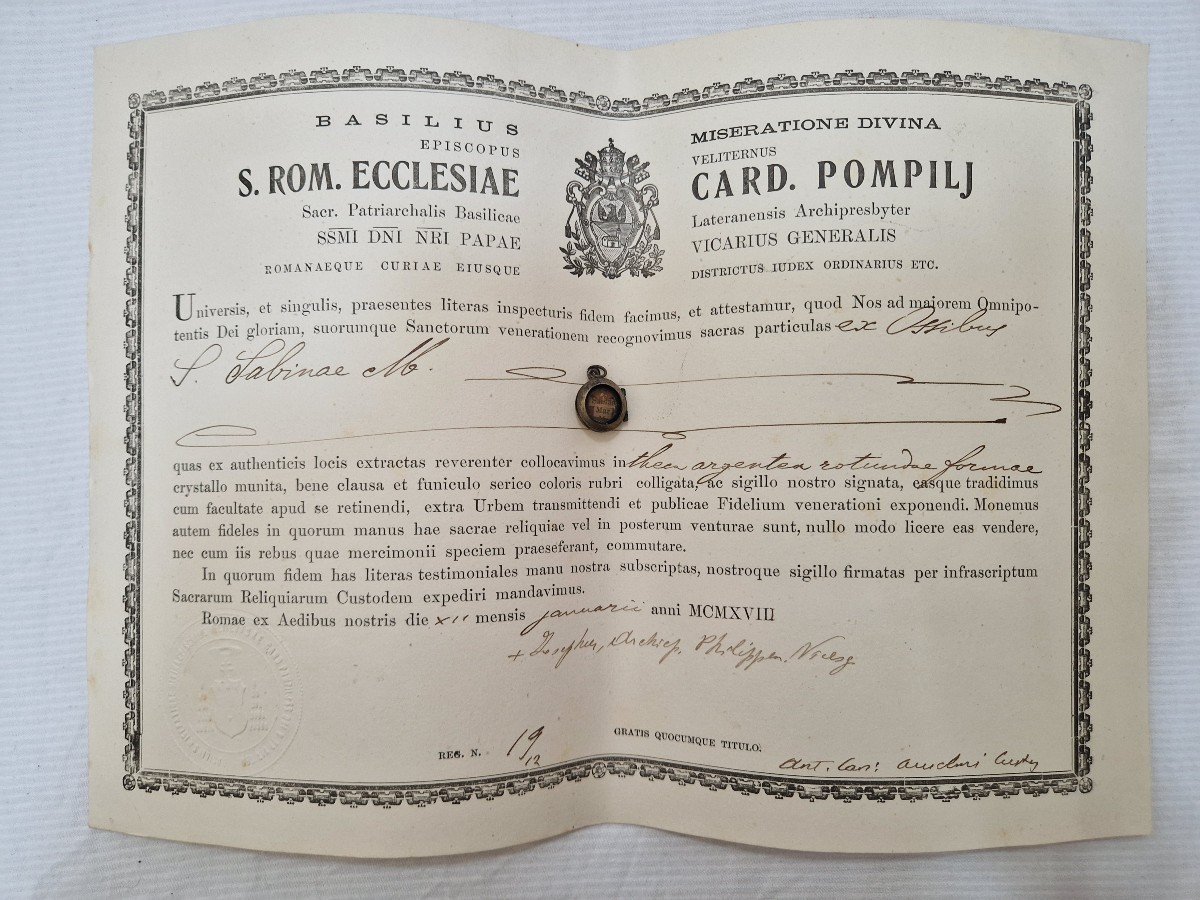 BASILIUS MISERATIONE DIVINA
EPISCOPUS VELITERNUS
S. ROM. ECCLESIAE CARD. POMPILJ
Sacr. Patriarchalis Basilicae Lateranensis Archipresbyter
SSMI DNI NRI PAPAE VICARIUS GENERALIS
ROMANAEQUE CURIAE EIUSQUE DISTRICTUS IUDEX ORDINARIUS ETC.
Universis, et singulis, praesentes literas inspecturis fidem facimus, et attestamur, quod Nos ad majorem Omnipo-
tentis Dei gloriam, suorumque Sanctorum venerationem recognovimus sacras particulas ex Ossibus
S. Sabinae M.
quas ex authenticis locis extractas reverenter collocavimus in theca argentea rotundae formae
crystallo munita, bene clausa et funiculo serico coloris rubri colligata, ac sigillo nostro signata, easque tradidimus
cum facultate apud se retinendi, extra Urbem transmittendi et publicae Fidelium venerationi exponendi. Monemus
autem fideles in quorum manus hae sacrae reliquiae vel in posterum venturae sunt, nullo modo licere eas vendere,
nec cum iis rebus quae mercimonii speciem praeseferant, commutare.
In quorum fidem has literas testimoniales manu nostra subscriptas, nostroque sigillo firmatas per infrascriptum
Sacrarum Reliquiarum Custodem expediri mandavimus.
Romae ex Aedibus nostris die XII mensis januarii anni MCMXVIII
+ Josephus, Archiep. Philippen. Vicesg
REG. N. 19/12 GRATIS QUOCUMQUE TITULO.
Ant. Can: